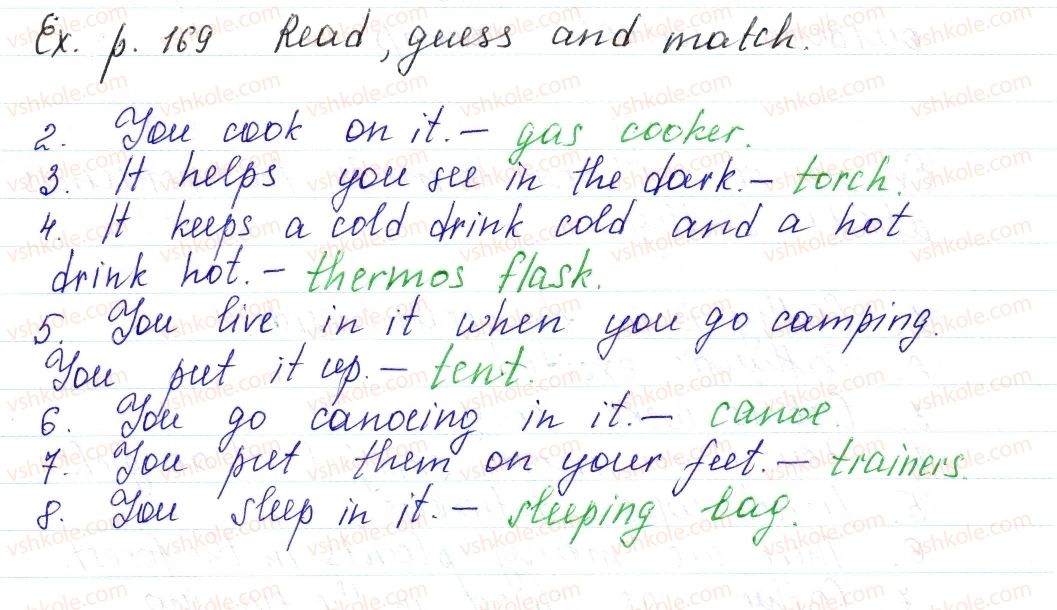 Ex. p. 169 Read, guess and match.
2. You cook on it. – gas cooker.
3. It helps you see in the dark. – torch.
4. It keeps a cold drink cold and a hot
drink hot. – thermos flask.
5. You live in it when you go camping.
You put it up. – tent.
6. You go canoeing in it. – canoe.
7. You put them on your feet. – trainers.
8. You sleep in it. – sleeping bag.